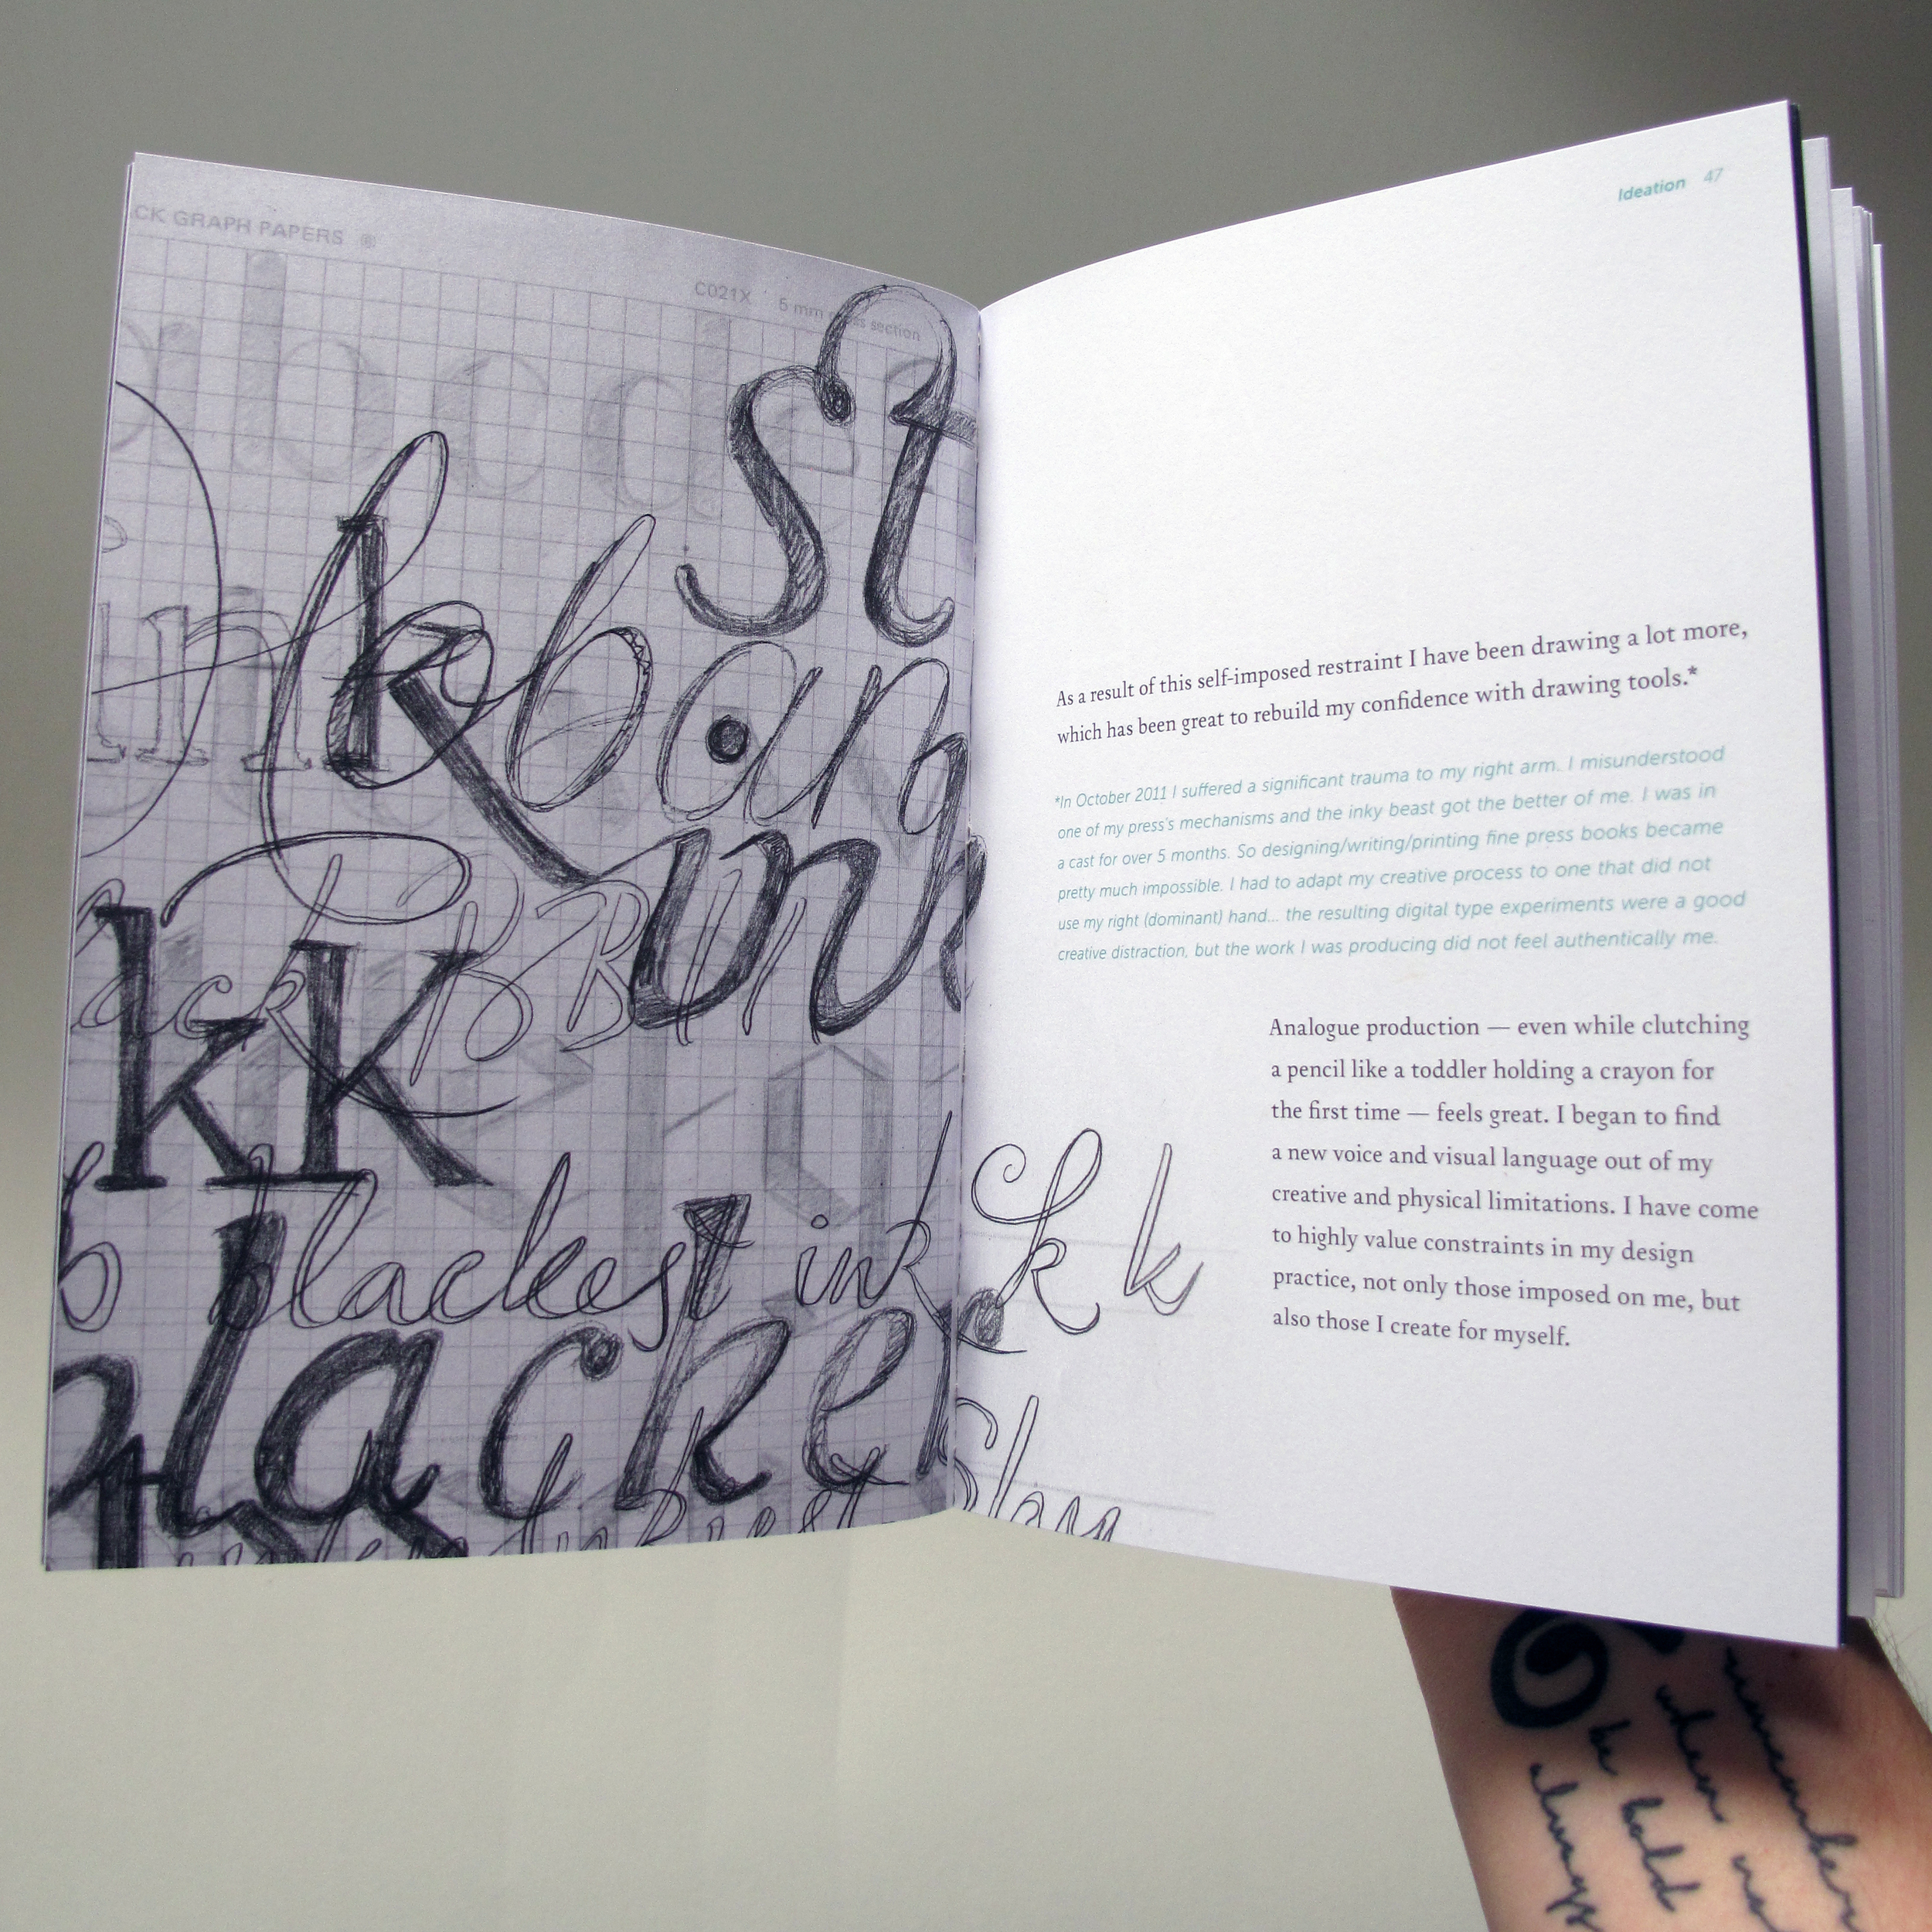 CK GRAPH PAPERS ®
C021X 5 mm section
st
k b an
ink
ack
kK
blackest ink
k k
blacke
Ideation 47
As a result of this self-imposed restraint I have been drawing a lot more,
which has been great to rebuild my confidence with drawing tools.*
*In October 2011 I suffered a significant trauma to my right arm. I misunderstood
one of my press's mechanisms and the inky beast got the better of me. I was in
a cast for over 5 months. So designing/writing/printing fine press books became
pretty much impossible. I had to adapt my creative process to one that did not
use my right (dominant) hand... the resulting digital type experiments were a good
creative distraction, but the work I was producing did not feel authentically me.
Analogue production — even while clutching
a pencil like a toddler holding a crayon for
the first time — feels great. I began to find
a new voice and visual language out of my
creative and physical limitations. I have come
to highly value constraints in my design
practice, not only those imposed on me, but
also those I create for myself.
remember
when
be bold
always